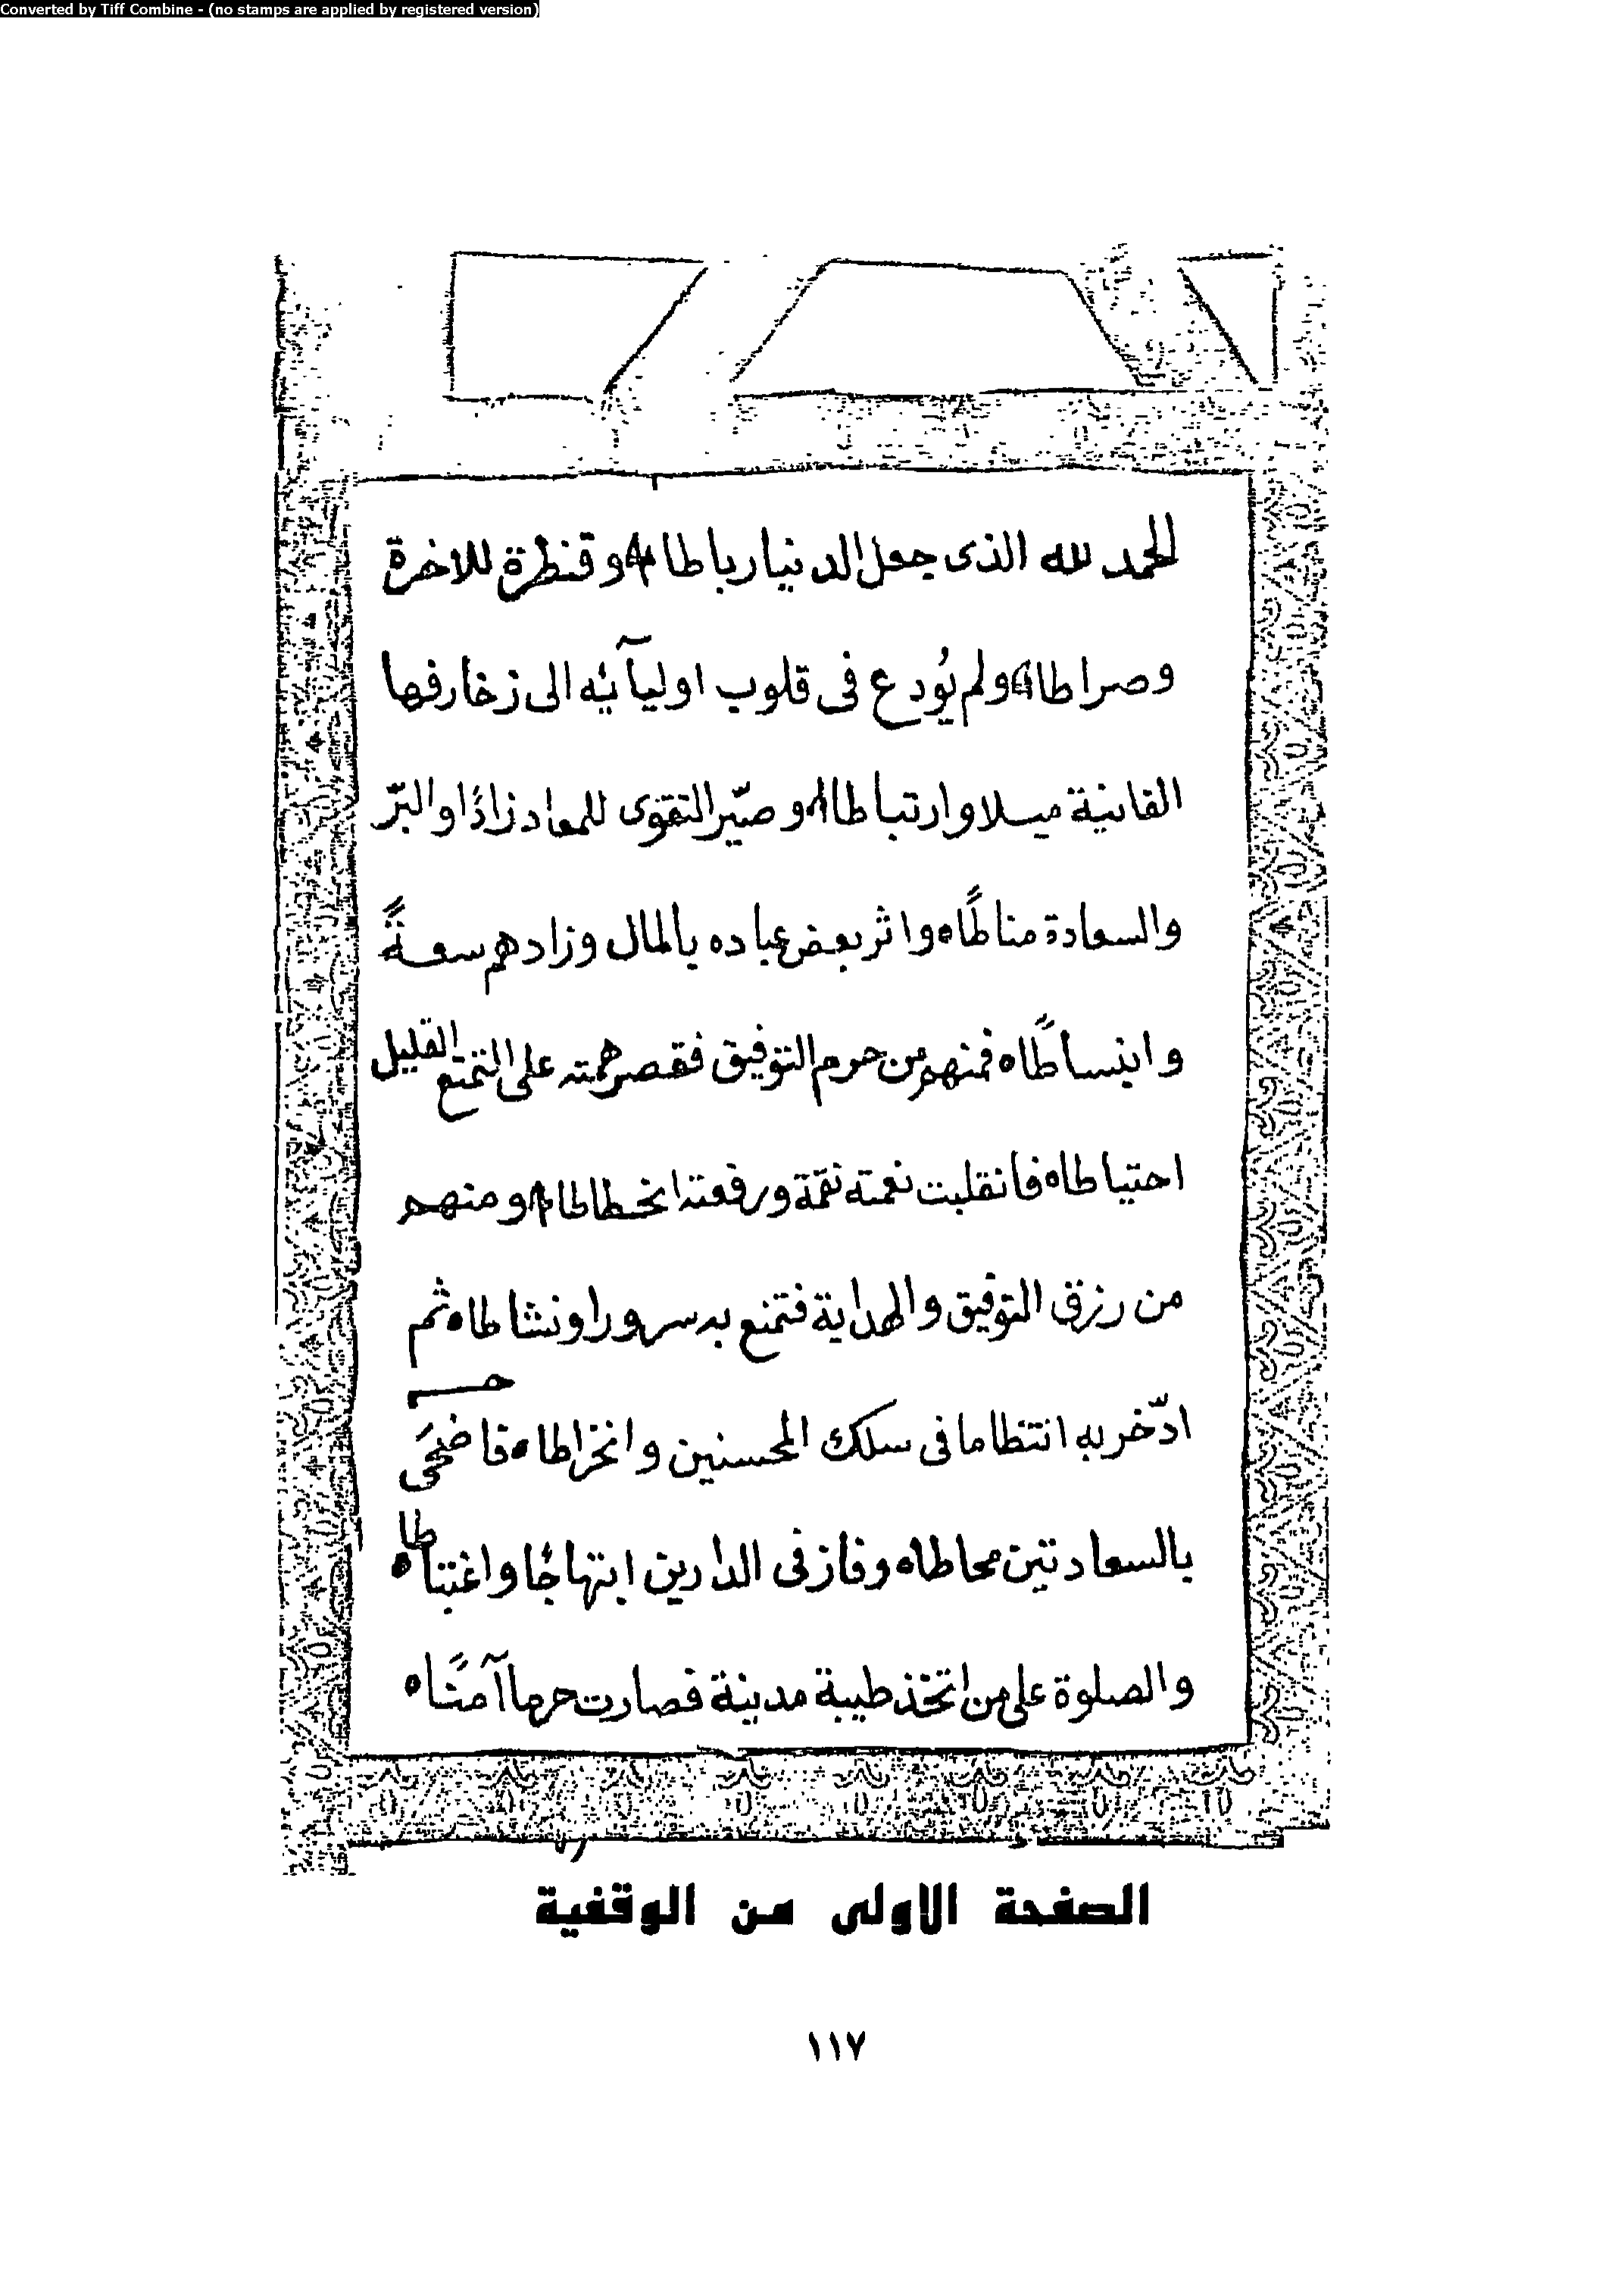 Converted by Tiff Combine - (no stamps are applied by registered version)
الحمد لله الذى جعل الدنيا رباطا وقنطرة للاخرة
وصراطا ولم يُودع فى قلوب اوليآئه الى زخارفها
الفانية ميلا وارتباطا وصيّر التقوى للمعاد زادًا والبرّ
والسعادة مناطًا واثر بعض عباده بالمال وزادهم سعةً
وابنساطًا فمنهم من حرم التوفيق فقصر همته على التمتع القليل
احتياطا فانقلبت نعمته نقمة ورفعته انخطاطا ومنهم
من رزق التوفيق والهداية فتمتع به سرورا ونشاطا ثم
ادّخر به انتظاما فى سلك المحسنين وانخراطا فاضحَى
بالسعادتين محاطا وفاز فى الدارين ابتهاجًا واغتباطا
والصلوة على من اتخذ طيبة مدينة فصارت حرما آمنًا
الصفحة الاولى من الوقفية
١١٧